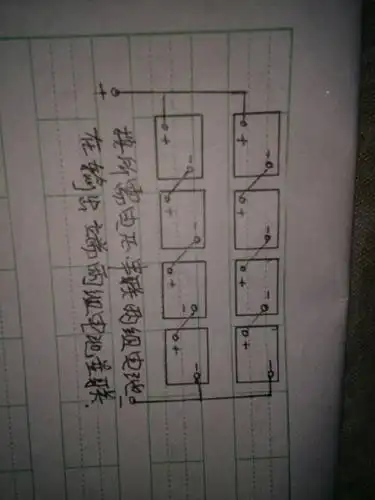 + - + - + - + -
+ - + - + - + -
按所需电压串联两组电池。
+ -
在输出端两组电池并联.